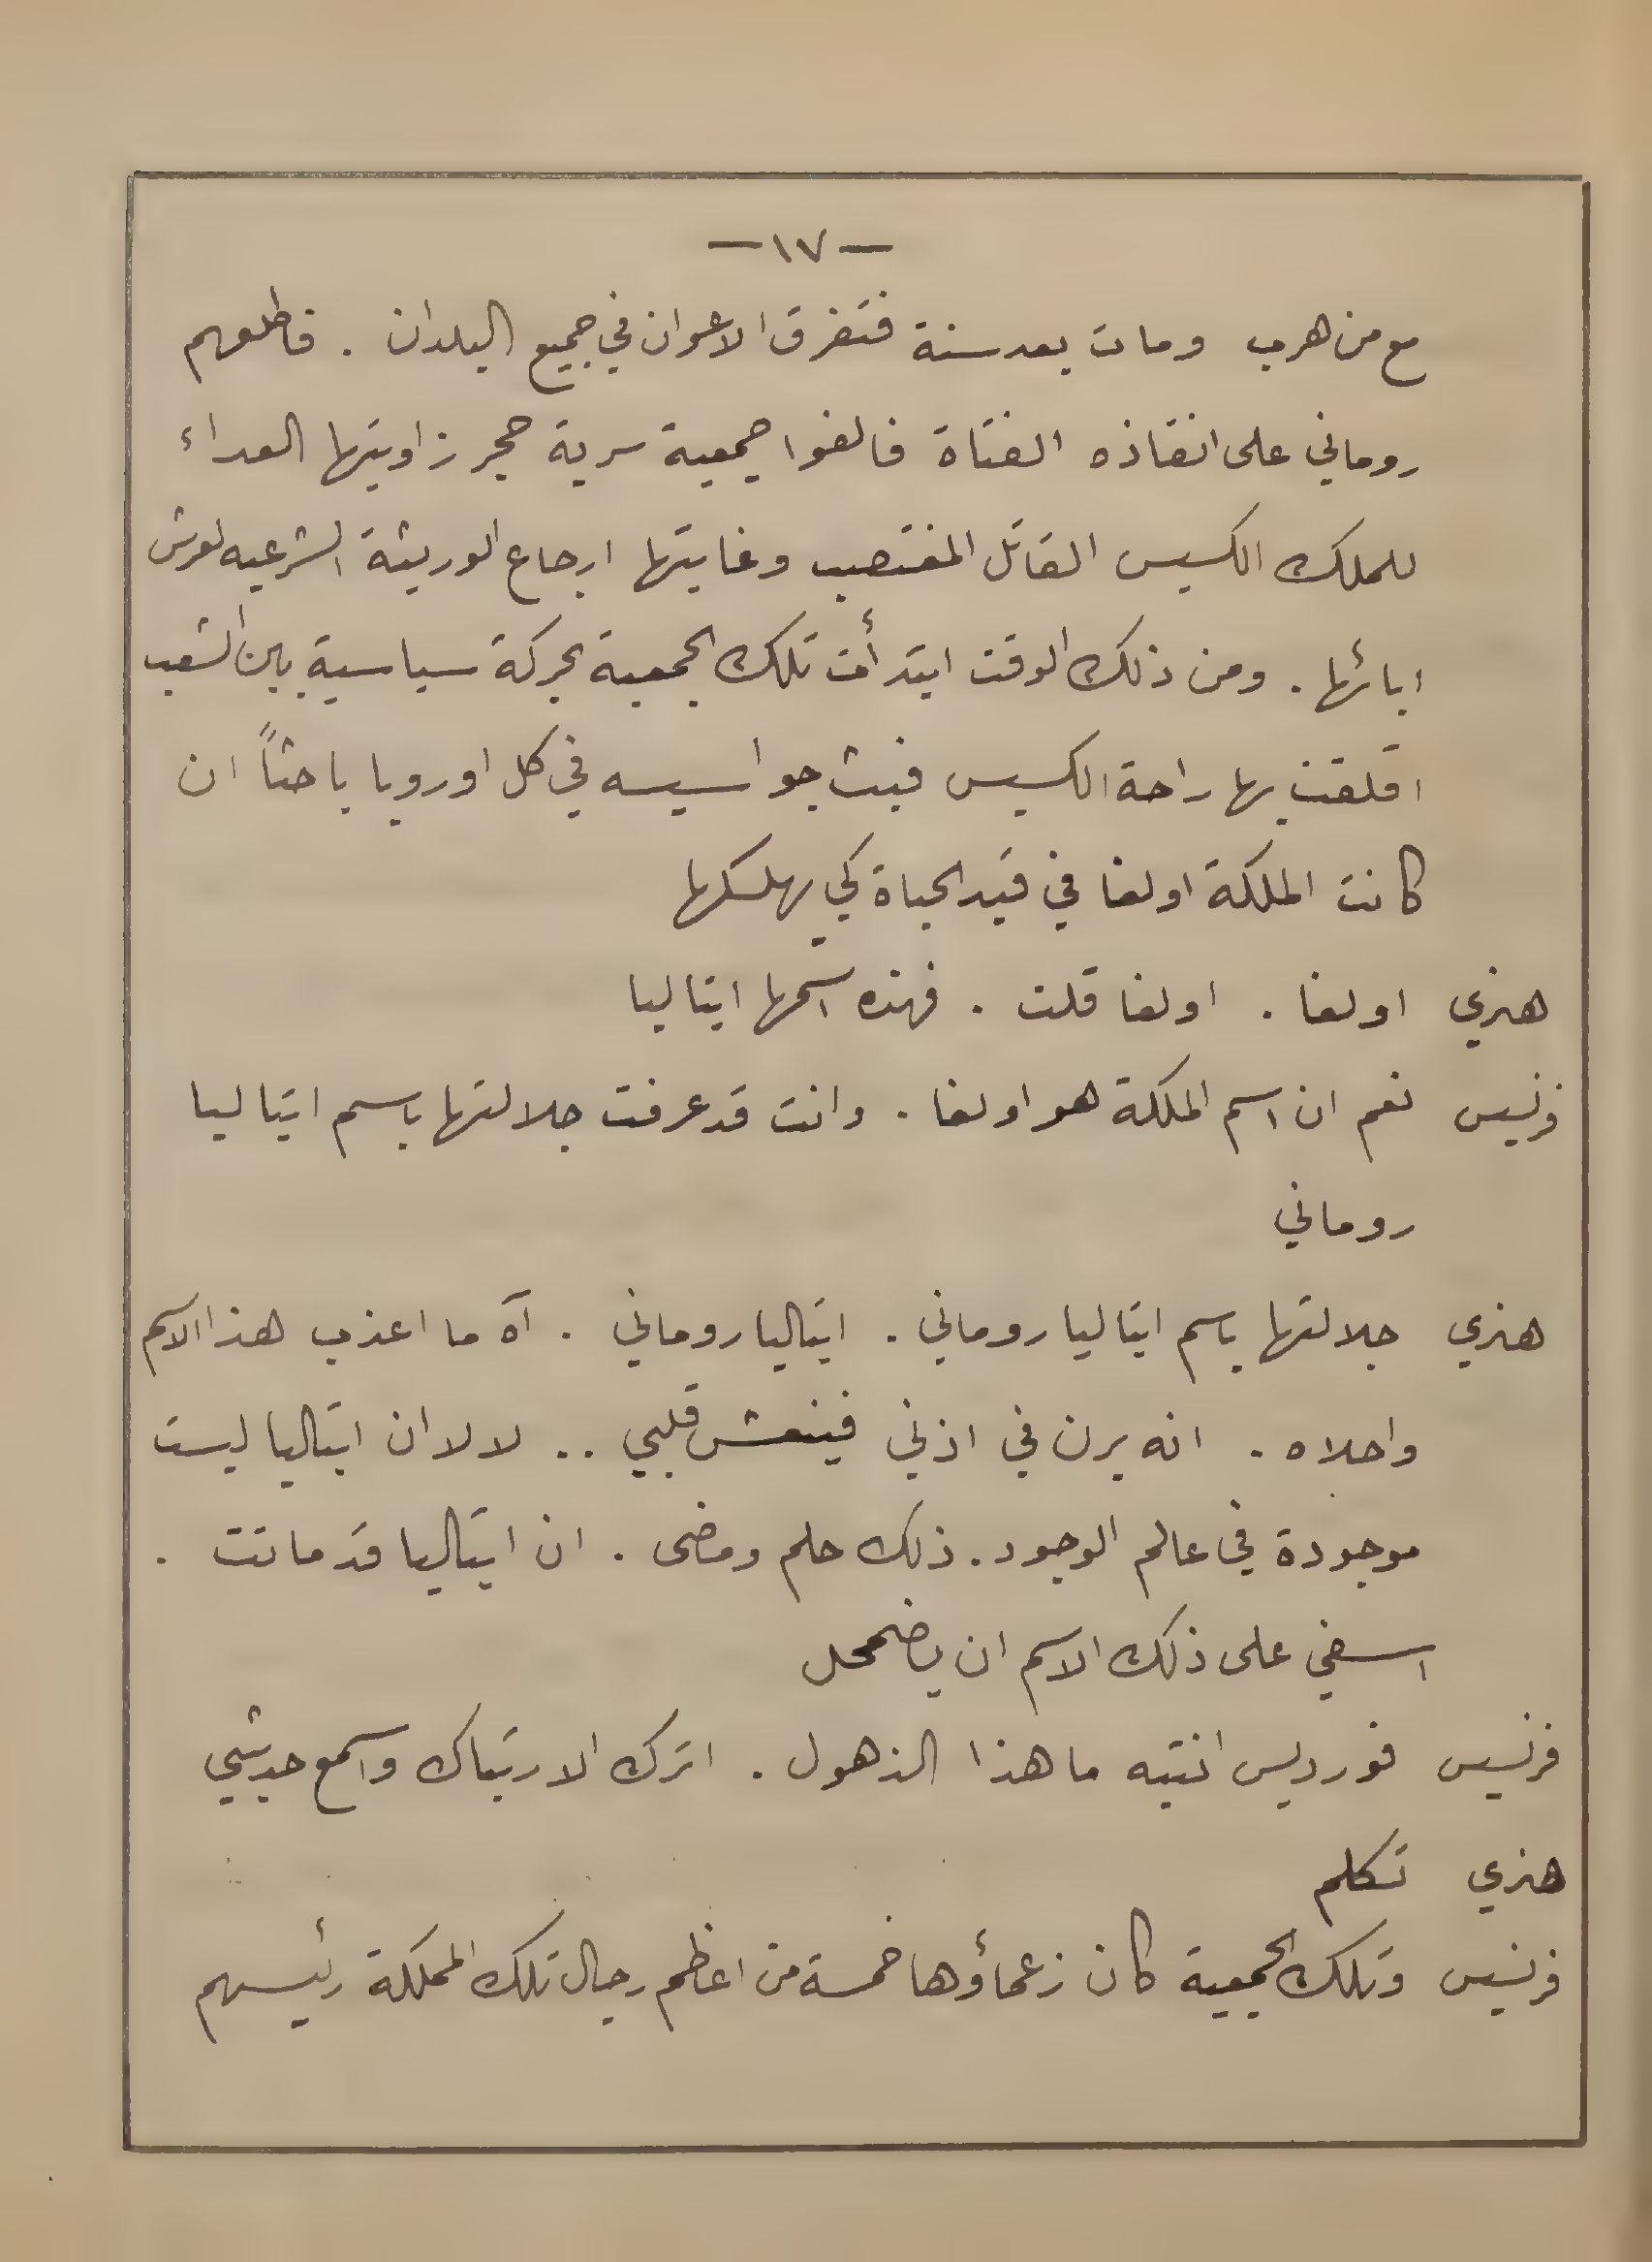 — ١٧ —
مع من هرب ومات بعد سنة فتفرق الاعوان في جميع البلدان . فاطلعهم
روماني على انقاذه الفتاة فالفوا جمعية سرية حجر زاويتها العداء
للملك الكسيس القاتل المغتصب وغايتها ارجاع الوريثة الشرعيه لعرش
ابائها . ومن ذلك الوقت ابتدأت تلك الجمعية بحركة سياسية بين الشعب
اقلقت بها راحة الكسيس فبث جواسيسه في كل اوروبا باحثاً ان
كانت الملكة اولغا في قيد الحياة كي يهلكها
هنري اولغا . اولغا قلت . فهذه اسمها ايتاليا
فرنسيس نعم ان اسم الملكة هو اولغا . وانت قد عرفت جلالتها باسم ايتاليا
روماني
هنري جلالتها باسم ايتاليا روماني . ايتاليا روماني . آه ما اعذب هذا الاسم
واحلاه . انه يرن في اذني فينعش قلبي .. لا لا ان ايتاليا ليست
موجودة في عالم الوجود . ذلك حلم ومضى . ان ايتاليا قد ماتت .
اسفي على ذلك الاسم ان يضمحل
فرنسيس فورديس انتبه ما هذا الذهول . اترك الارتباك واسمع حديثي
هنري تكلم
فرنسيس وتلك الجمعية كان زعماؤها خمسة من اعاظم رجال تلك المملكة رئيسهم